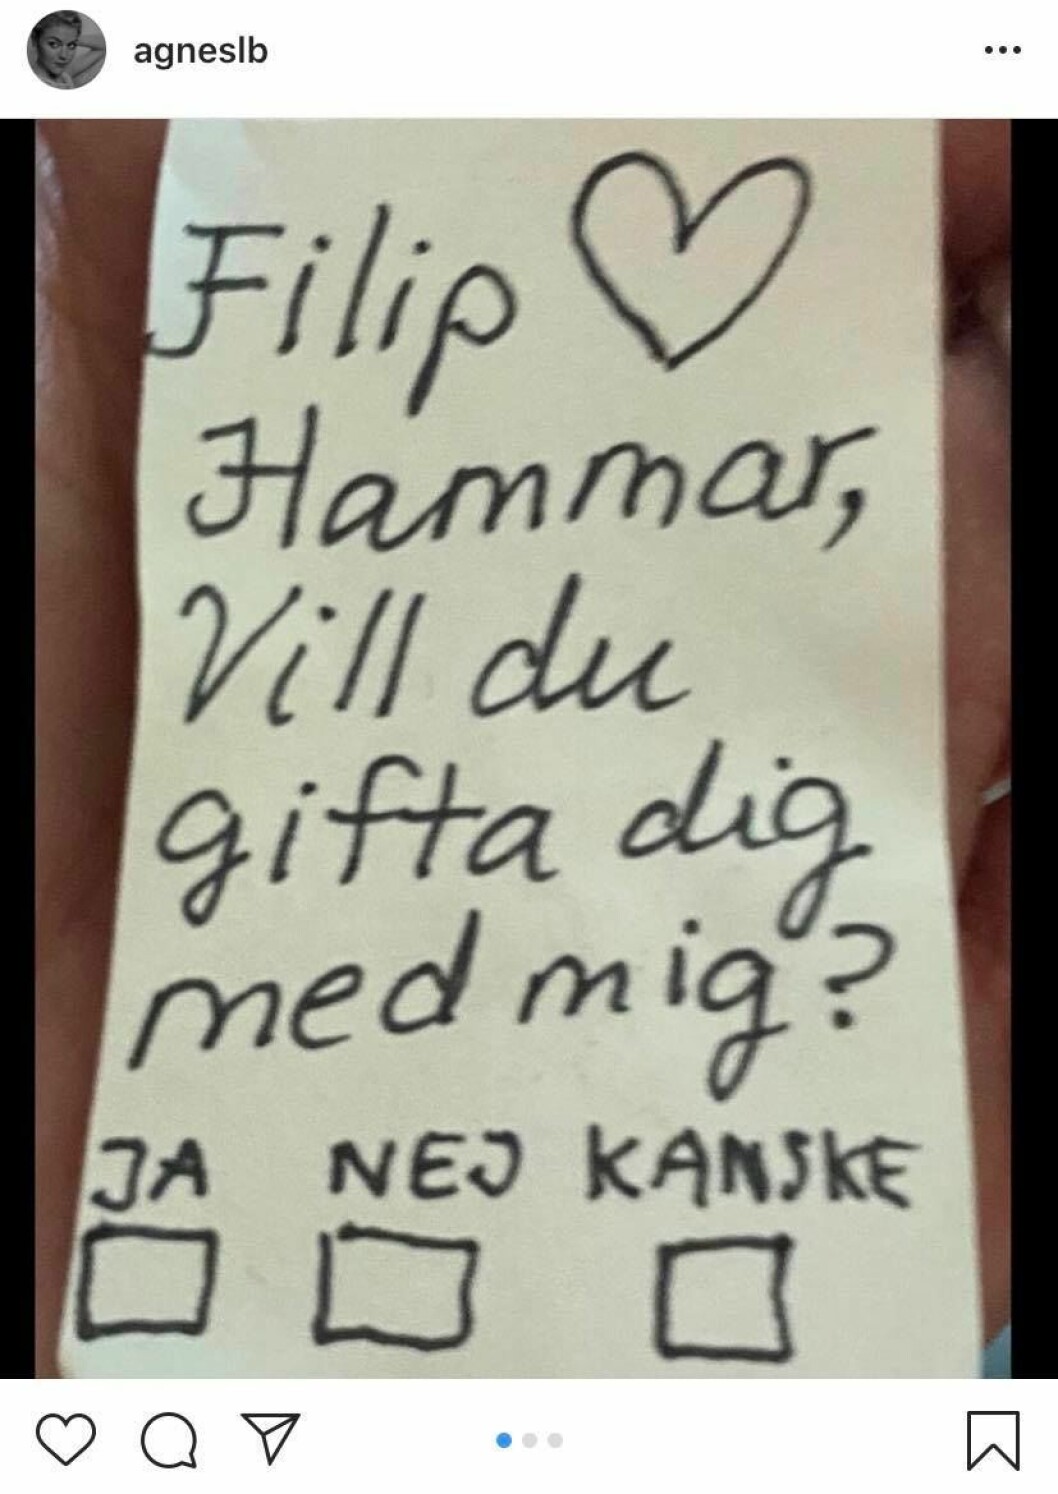 agneslb
Filip
Hammar,
Vill du
gifta dig
med mig?
JA NEJ KANSKE